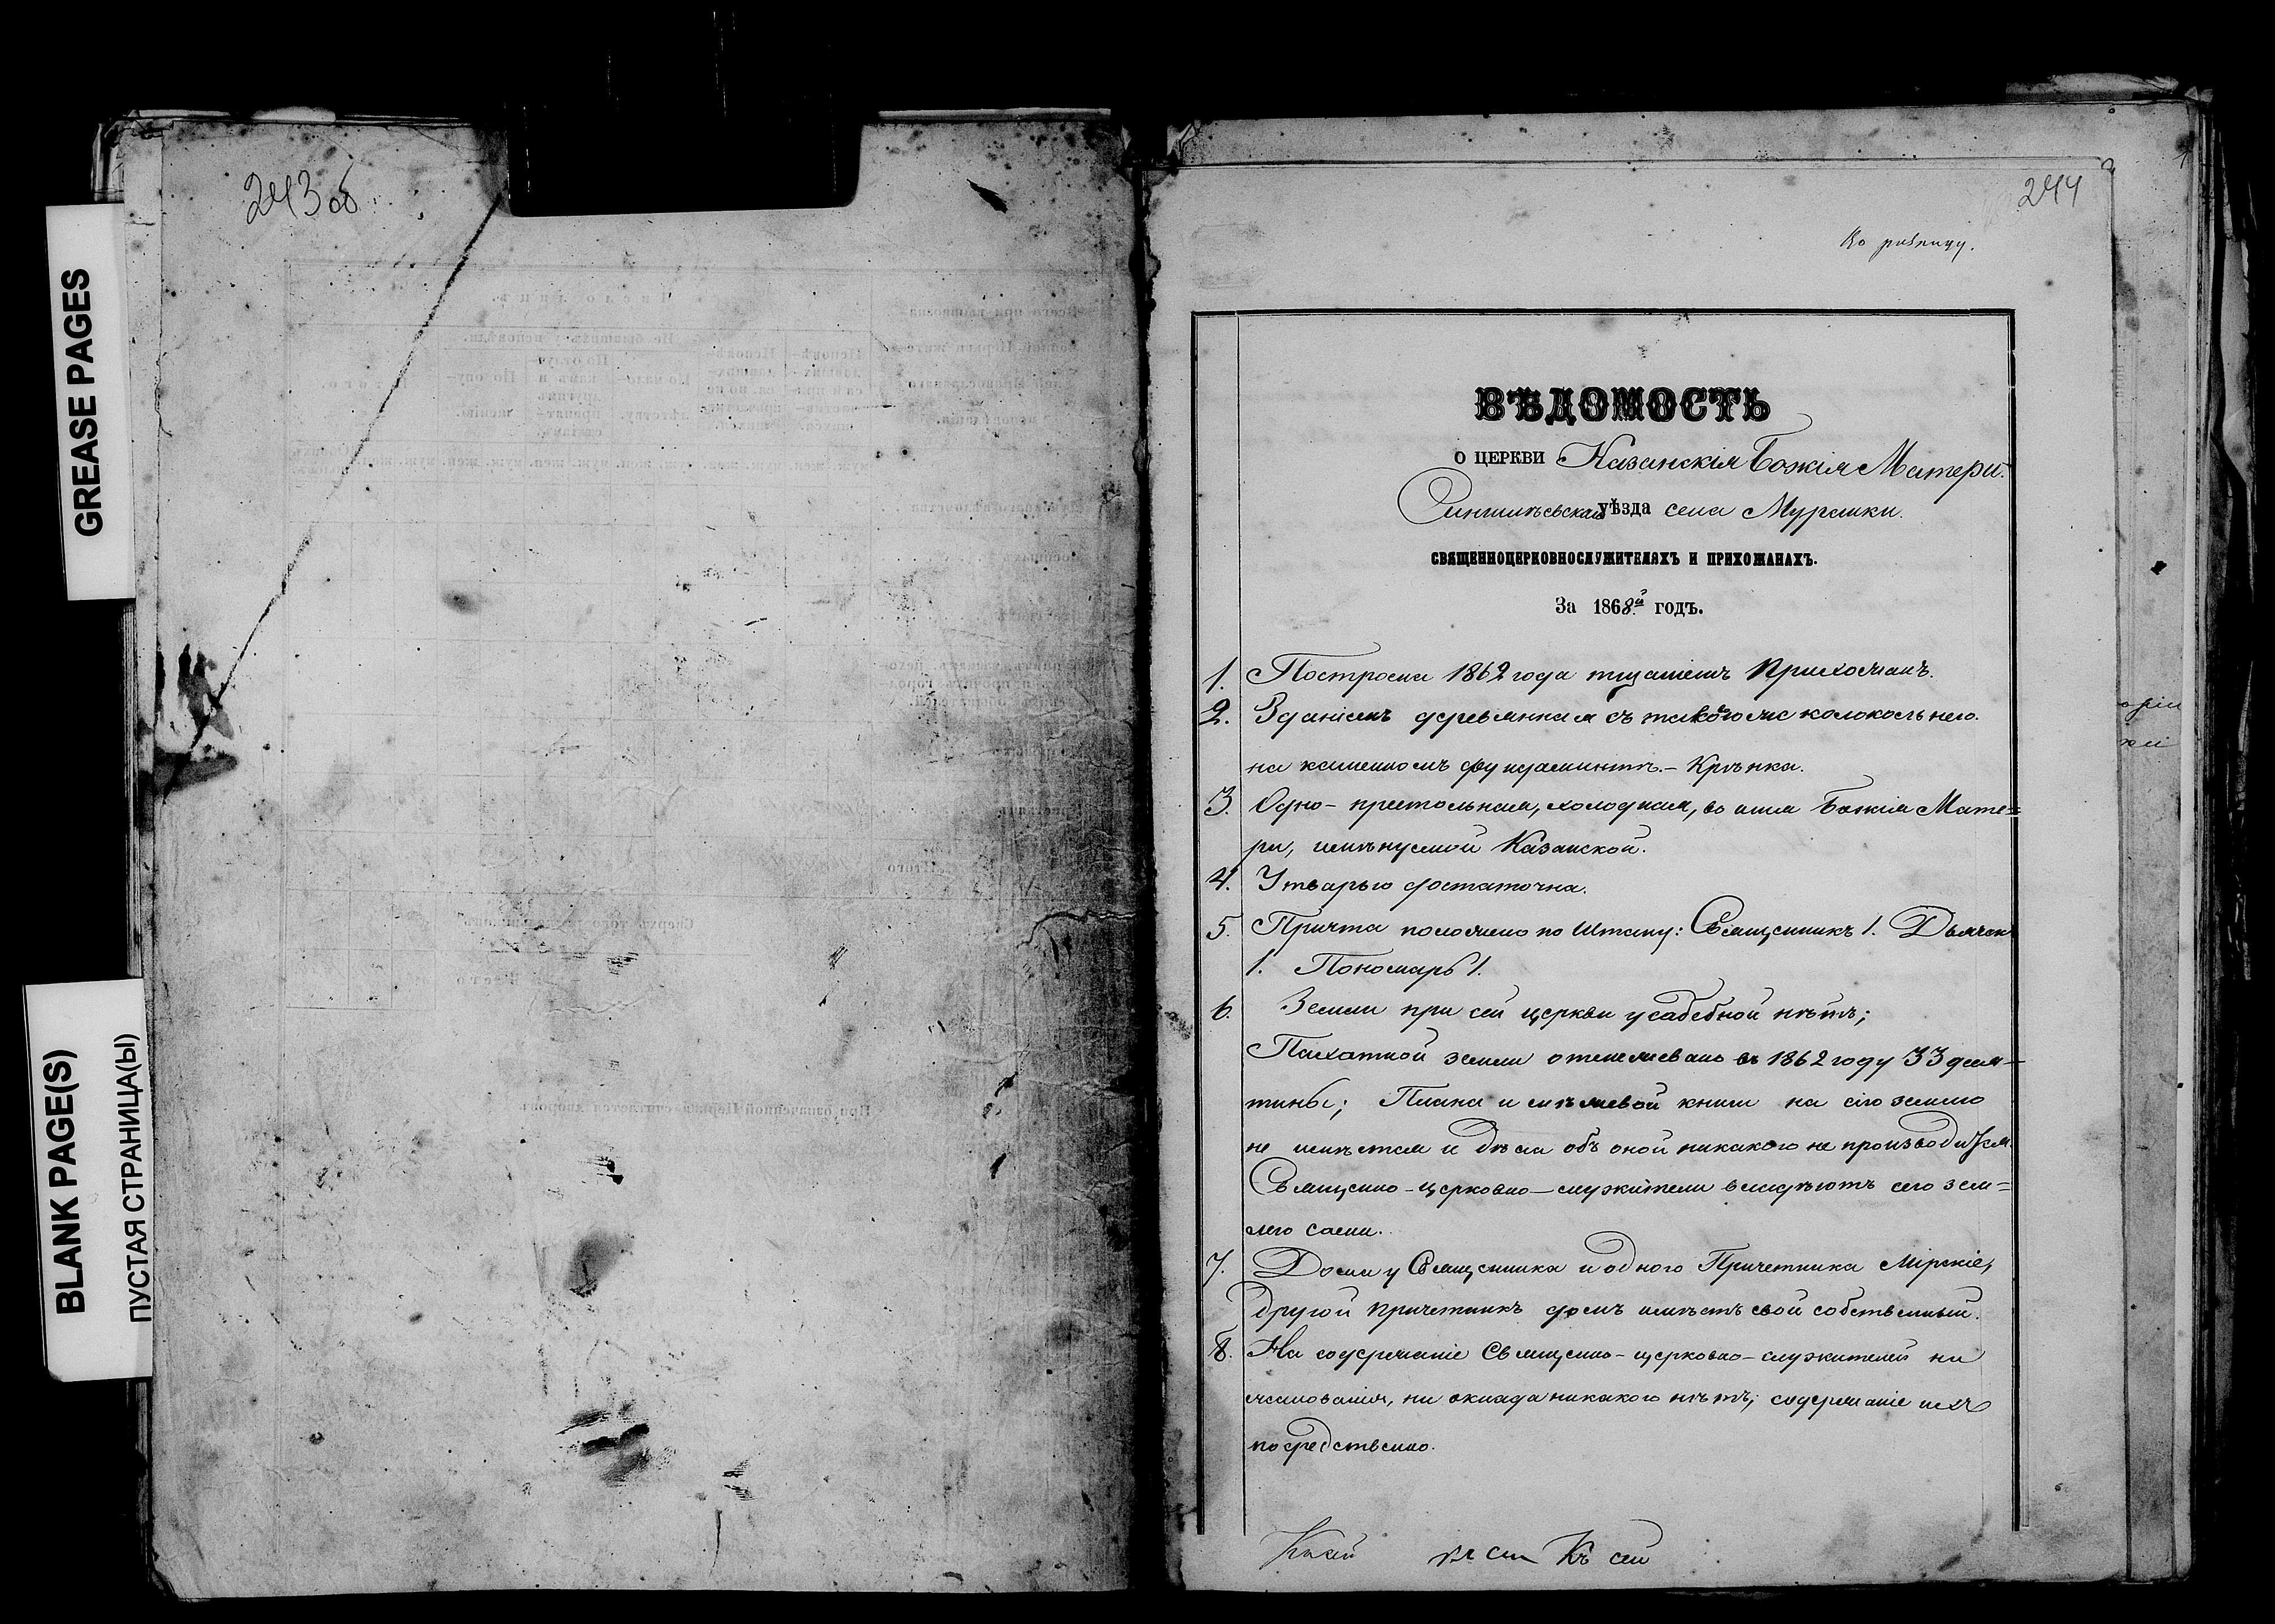 243 об
GREASE PAGES
BLANK PAGE(S)
ПУСТАЯ СТРАНИЦА(Ы)
244
ВѢДОМОСТЬ
О ЦЕРКВИ Казанскія Божія Матери.
уѣзда села Мурашки.
СВЯЩЕННОЦЕРКОВНОСЛУЖИТЕЛЯХЪ И ПРИХОЖАНАХЪ.
За 1868й годъ.
1. Построена 1862 года тщаніемъ Прихожанъ.
2. Зданіемъ деревянная съ таковою же колокольнею.
на каменномъ фундаминтѣ. – Крѣпка.
3. Одно-престольная, холодная, во имя Божія Мате=
ри, имѣнуемой Казанской.
4. Утварью достаточна.
5. Причта положено по Штату: Священникъ 1. Дьячек
1. Пономарь 1.
6. Земли при сей церкви усадебной нѣтъ;
Пахатной земли отмежевано въ 1862 году 33 деся-
тины; Плана и мѣжевой книги на сію землю
не имѣется и дѣла объ оной никакого не производится.
Священно-церковно-служители владѣютъ сею зем=
лею сами.
7. Домы у Священника и одного Причетника Мірскіе,
другой причетникъ домъ имѣетъ свой собственный.
8. На содержаніе Священно-церковно-служителей ни
жалованія, ни оклада никакого нѣтъ; содержаніе ихъ
посредственно.
Къ сей